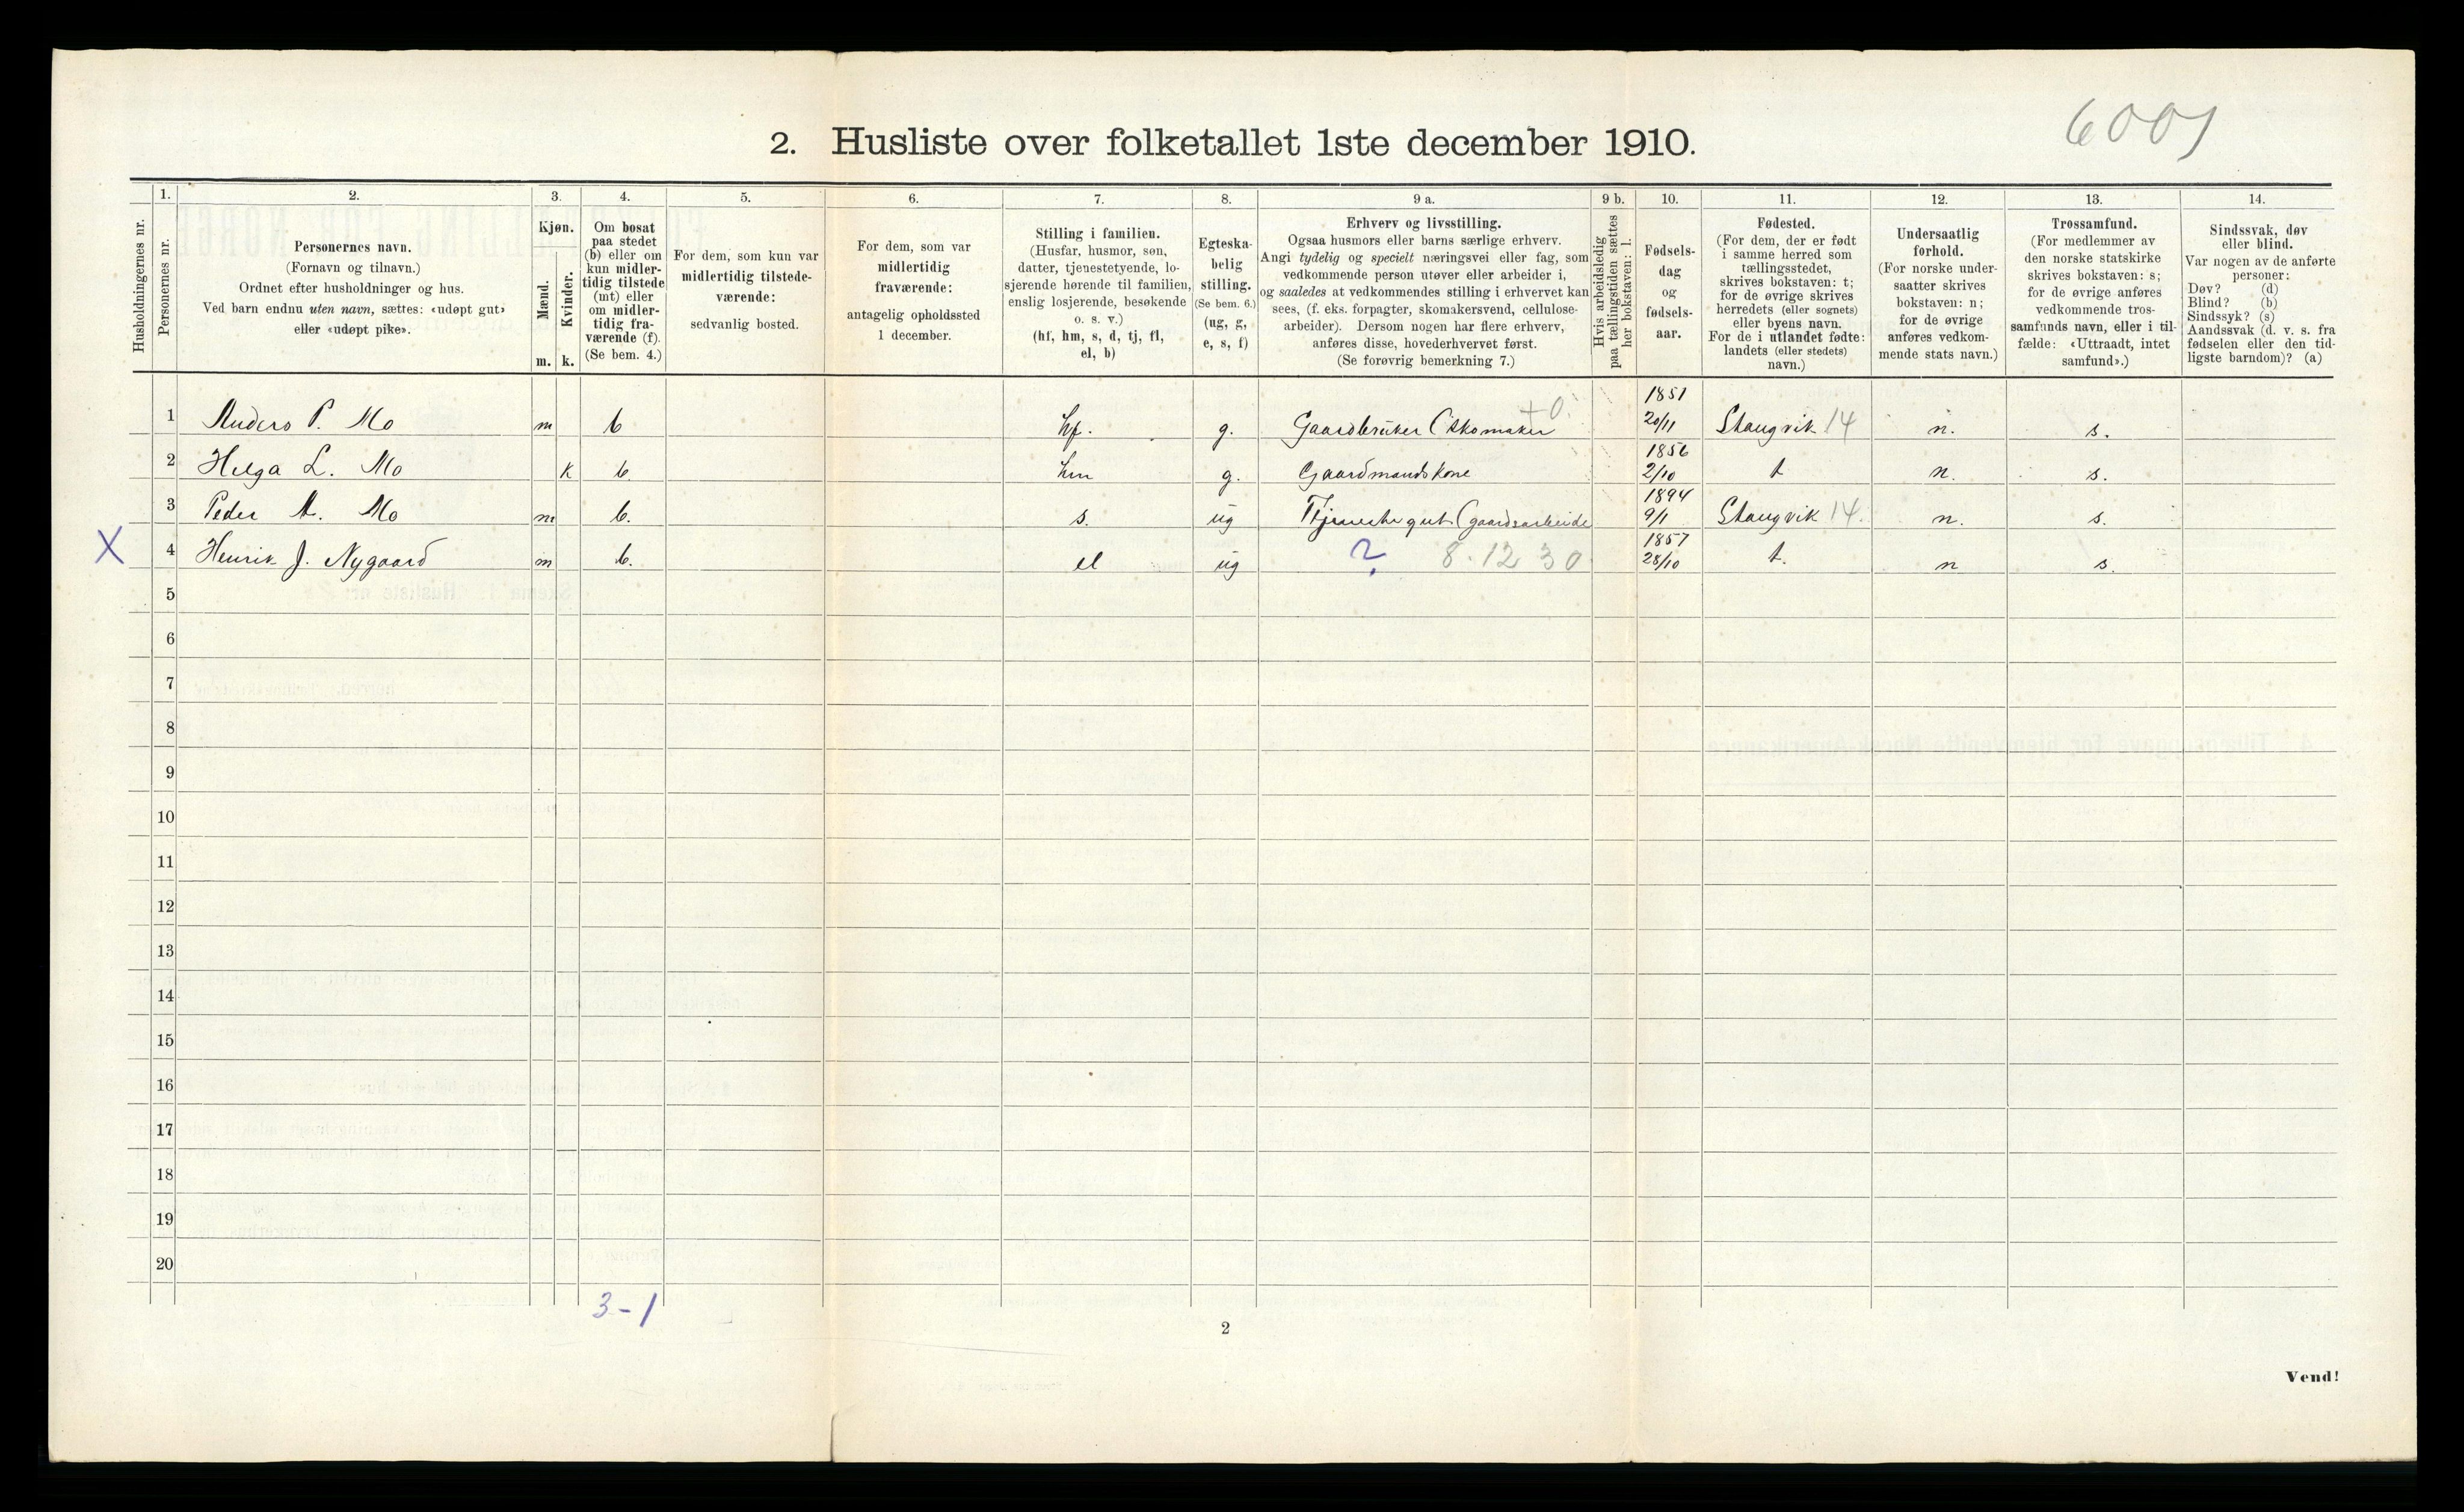 6001
2. Husliste over folketallet 1ste december 1910.
Husholdningernes nr.
1.
Personernes nr.
2.
Personernes navn.
(Fornavn og tilnavn.)
Ordnet efter husholdninger og hus.
Ved barn endnu uten navn, sættes: «udøpt gut»
eller «udøpt pike».
3.
Kjøn.
Mænd.
Kvinder.
m. k.
4.
Om bosat
paa stedet
(b) eller om
kun midler-
tidig tilstede
(mt) eller
om midler-
tidig fra-
værende (f).
(Se bem. 4.)
5.
For dem, som kun var
midlertidig tilstede-
værende:
sedvanlig bosted.
6.
For dem, som var
midlertidig
fraværende:
antagelig opholdssted
1 december.
7.
Stilling i familien.
(Husfar, husmor, søn,
datter, tjenestetyende, lo-
sjerende hørende til familien,
enslig losjerende, besøkende
o. s. v.)
(hf, hm, s, d, tj, fl,
el, b)
8.
Egteska-
belig
stilling.
(Se bem. 6.)
(ug, g,
e, s, f)
9 a.
Erhverv og livsstilling.
Ogsaa husmors eller barns særlige erhverv.
Angi tydelig og specielt næringsvei eller fag, som
vedkommende person utøver eller arbeider i,
og saaledes at vedkommendes stilling i erhvervet kan
sees, (f. eks. forpagter, skomakersvend, cellulose-
arbeider). Dersom nogen har flere erhverv,
anføres disse, hovederhvervet først.
(Se forøvrig bemerkning 7.)
9 b.
Hvis arbeidsledig
paa tællingstiden sættes
her bokstaven: l.
10.
Fødsels-
dag
og
fødsels-
aar.
11.
Fødested.
(For dem, der er født
i samme herred som
tællingsstedet,
skrives bokstaven: t;
for de øvrige skrives
herredets (eller sognets)
eller byens navn.
For de i utlandet fødte:
landets (eller stedets)
navn.)
12.
Undersaatlig
forhold.
(For norske under-
saatter skrives
bokstaven: n;
for de øvrige
anføres vedkom-
mende stats navn.)
13.
Trossamfund.
(For medlemmer av
den norske statskirke
skrives bokstaven: s;
for de øvrige anføres
vedkommende tros-
samfunds navn, eller i til-
fælde: «Uttraadt, intet
samfund».)
14.
Sindssvak, døv
eller blind.
Var nogen av de anførte
personer:
Døv? (d)
Blind? (b)
Sindssyk? (s)
Aandssvak (d. v. s. fra
fødselen eller den tid-
ligste barndom)? (a)
1 Anders P. Mo m b hf. g. Gaardbruker (Skomaker +0. 1851 20/11 Stangvik 14 n. s.
2 Helga L. Mo k b. hm g. Gaardmandskone 1856 2/10 t n. s.
3 Peder A. Mo m b. s. ug Tjenestegut (gaardsarbeide 1894 9/1 Stangvik 14. n. s.
X 4 Henrik J. Nygaard m b. el ug ? 8.12 30 1857 28/10 t. n s.
5
6
7
8
9
10
11
12
13
14
15
16
17
18
19
20
3-1
2
Vend!